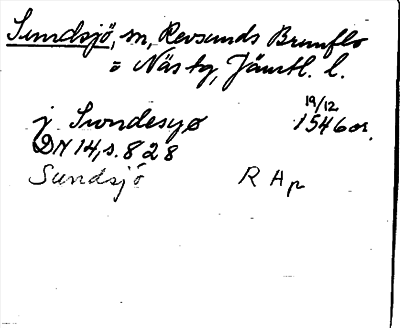 Sundsjö, sn, Revsunds Brunflo
o Näs tg, Jämtl. l.
19/12
j Swndesyø 1546 or.
DN 14, s. 828
Sundsjö R Ap